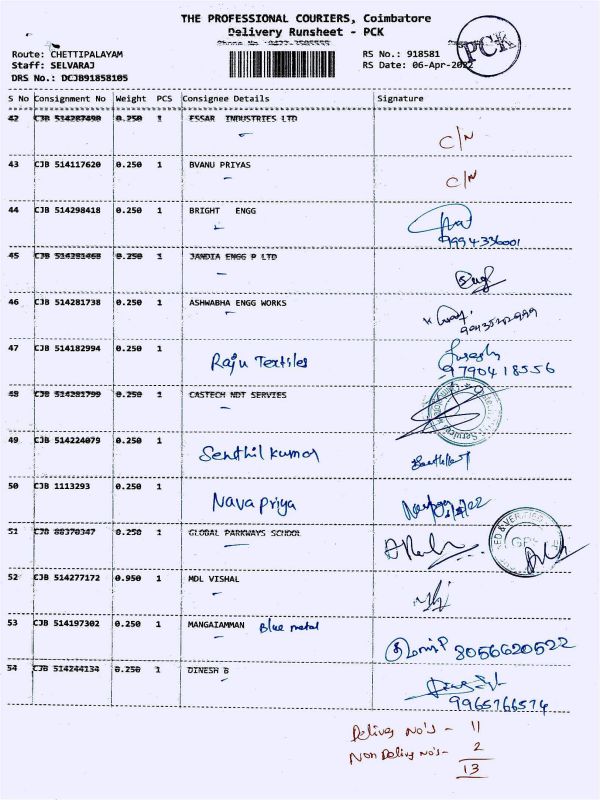 THE PROFESSIONAL COURIERS, Coimbatore
Delivery Runsheet - PCK
PCK
Route: CHETTIPALAYAM
RS No.: 918581
Staff: SELVARAJ
RS Date: 06-Apr-2022
DRS No.: DCJB91858105
S No Consignment No Weight PCS Consignee Details Signature
42 CJB 514287490 0.250 1 ESSAR INDUSTRIES LTD C/N
43 CJB 514117620 0.250 1 BVANU PRIYAS C/N
44 CJB 514298418 0.250 1 BRIGHT ENGG
9994336001
45 CJB 514281468 0.250 1 JANDIA ENGG P LTD
46 CJB 514281738 0.250 1 ASHWABHA ENGG WORKS
47 CJB 514182994 0.250 1 Raju Textiles
9790418556
48 CJB 514281799 0.250 1 CASTECH NDT SERVIES
49 CJB 514224079 0.250 1 Senthil kumar
50 CJB 1113293 0.250 1 Nava priya
51 CJB 88370347 0.250 1 GLOBAL PARKWAYS SCHOOL
52 CJB 514277172 0.950 1 MDL VISHAL
53 CJB 514197302 0.250 1 MANGAIAMMAN Blue metal
8056620522
54 CJB 514244134 0.250 1 DINESH B
9965766574
Delivey No's - 11
Non Delivey No's - 2
13